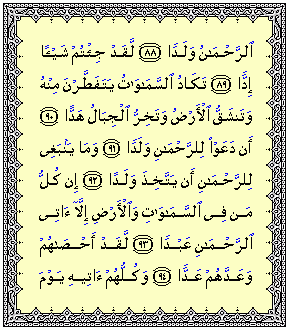 ٱلرَّحْمَـٰنُ وَلَدًا ﴿٨٨﴾ لَّقَدْ جِئْتُمْ شَيْـًٔا
إِدًّا ﴿٨٩﴾ تَكَادُ ٱلسَّمَـٰوَٰتُ يَتَفَطَّرْنَ مِنْهُ
وَتَنشَقُّ ٱلْأَرْضُ وَتَخِرُّ ٱلْجِبَالُ هَدًّا ﴿٩٠﴾
أَن دَعَوْا۟ لِلرَّحْمَـٰنِ وَلَدًا ﴿٩١﴾ وَمَا يَنۢبَغِى
لِلرَّحْمَـٰنِ أَن يَتَّخِذَ وَلَدًا ﴿٩٢﴾ إِن كُلُّ
مَن فِى ٱلسَّمَـٰوَٰتِ وَٱلْأَرْضِ إِلَّآ ءَاتِى
ٱلرَّحْمَـٰنِ عَبْدًا ﴿٩٣﴾ لَّقَدْ أَحْصَىٰهُمْ
وَعَدَّهُمْ عَدًّا ﴿٩٤﴾ وَكُلُّهُمْ ءَاتِيهِ يَوْمَ